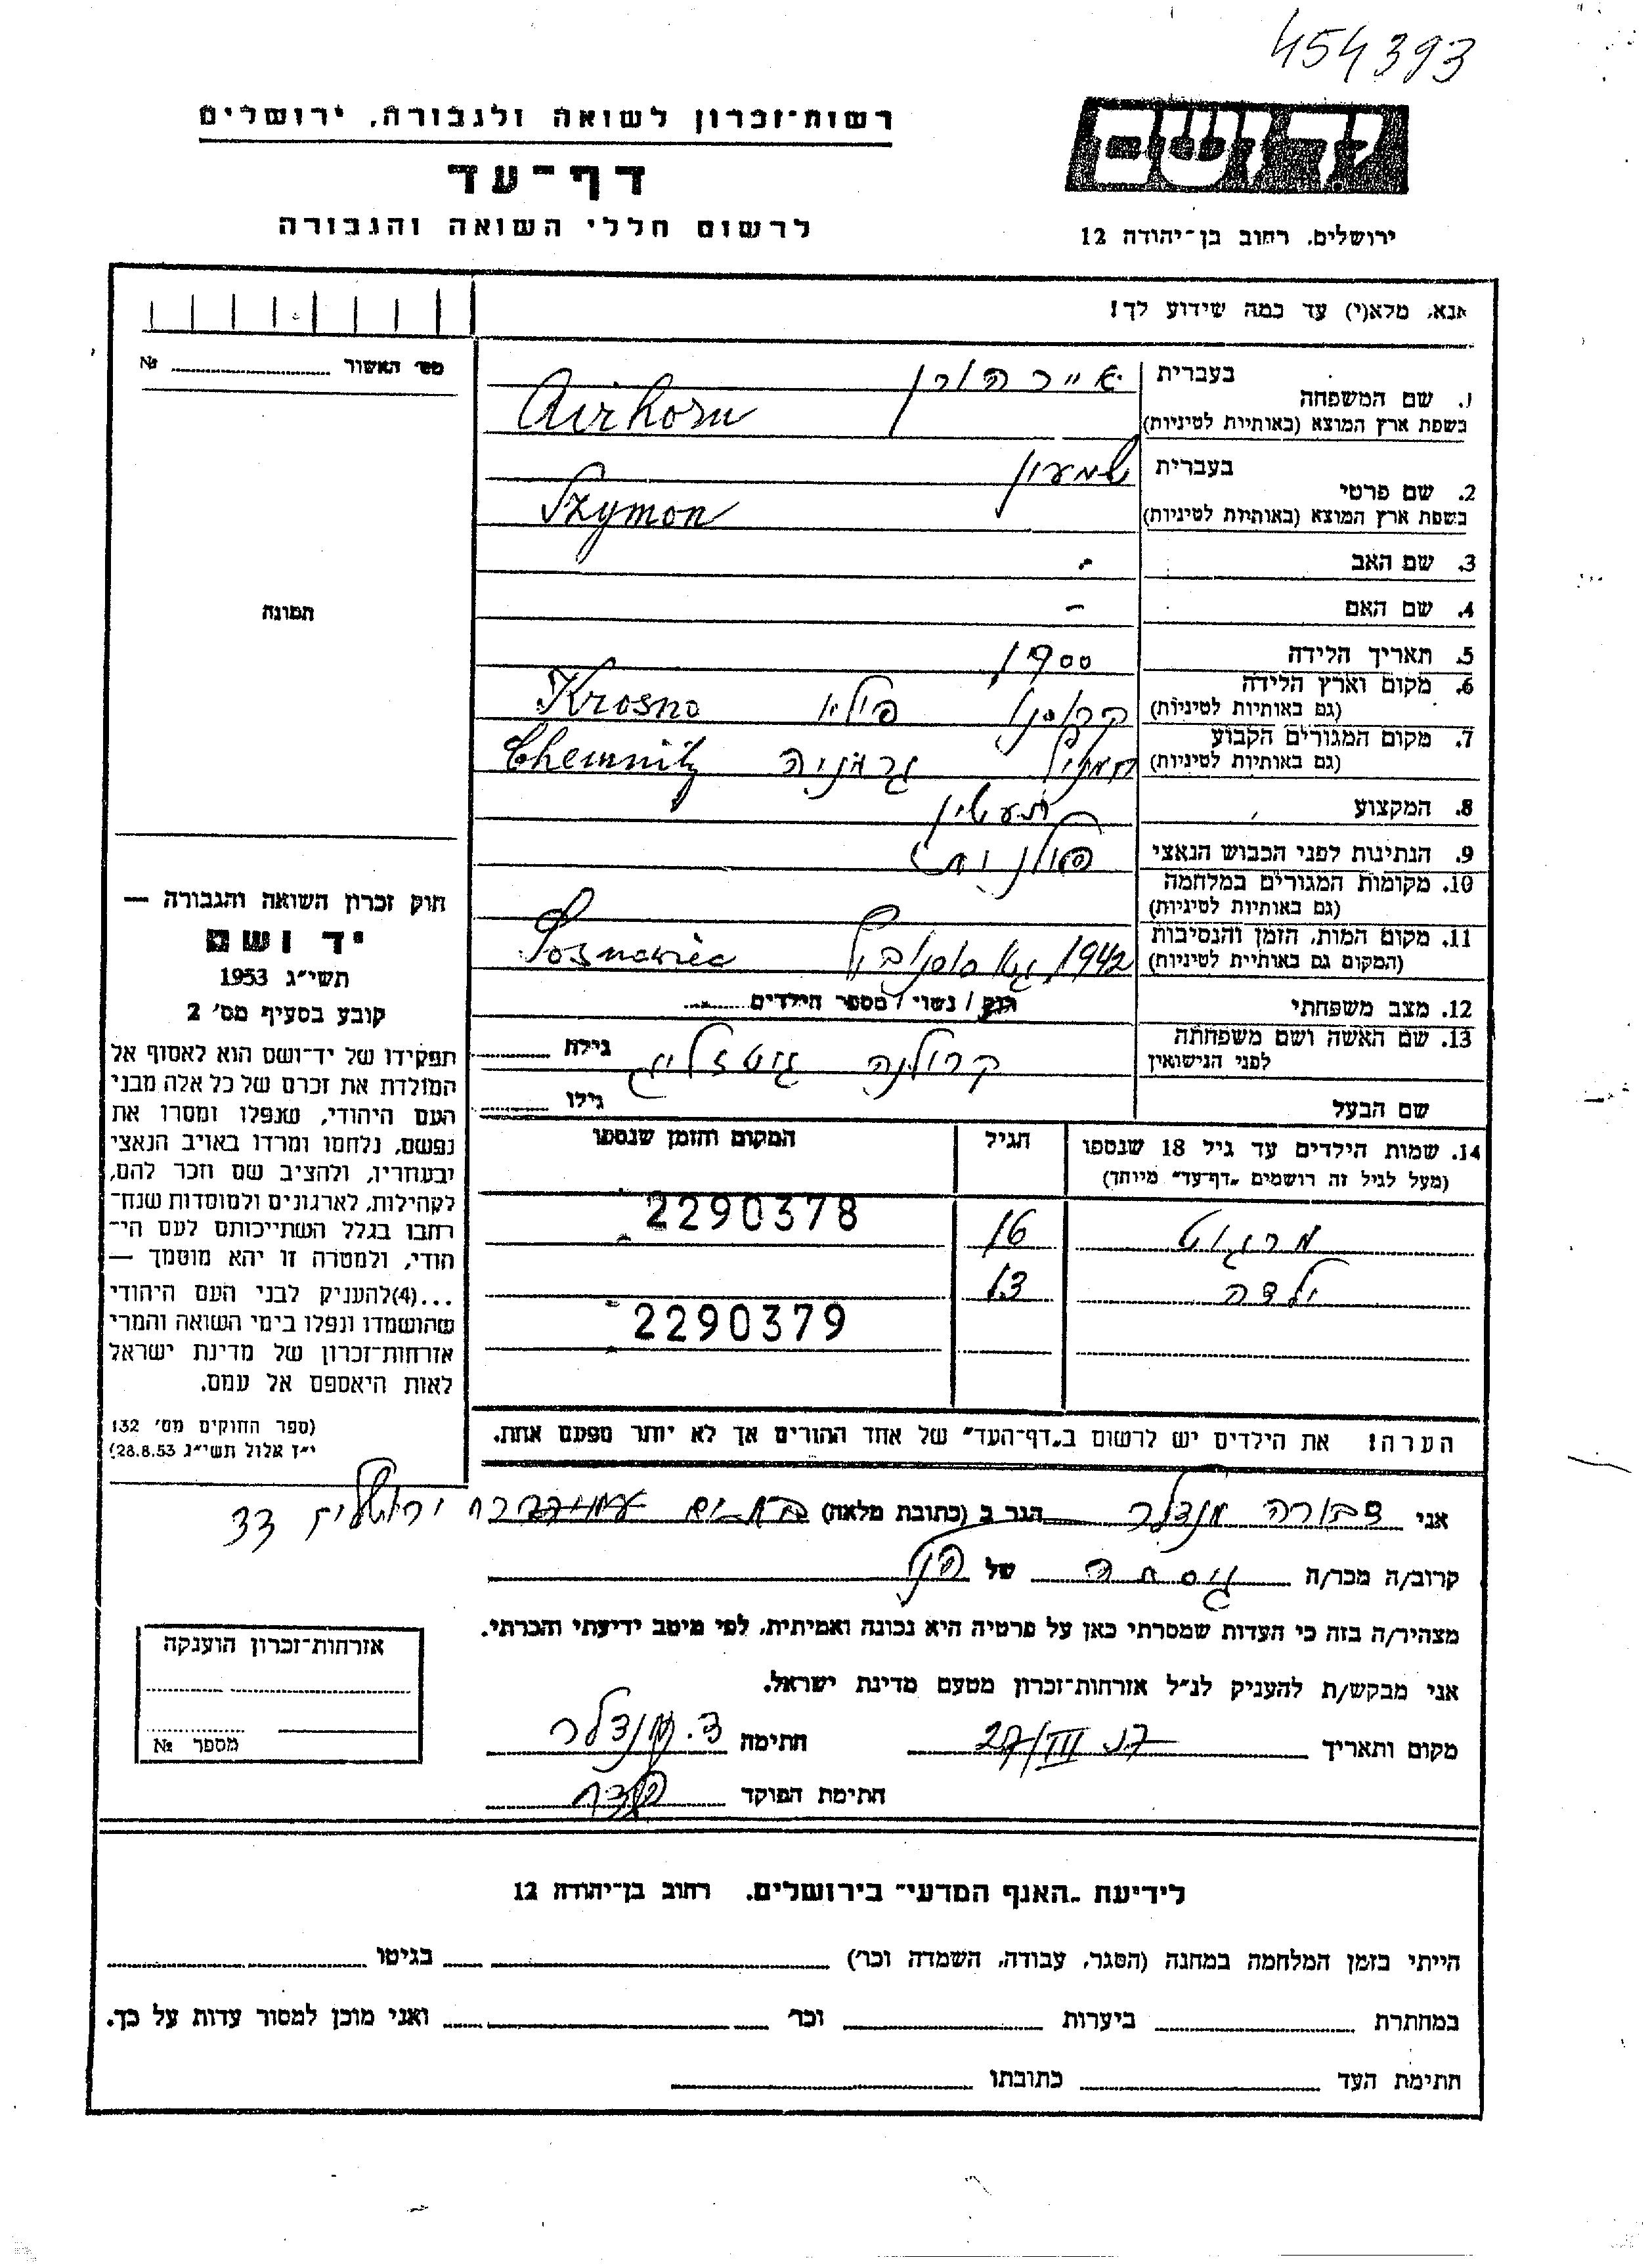 454393
יד ושם
ירושלים, רחוב בן־יהודה 12
רשות־זכרון לשואה ולגבורה, ירושלים
דף־עד
לרשום חללי השואה והגבורה
אנא, מלא(י) עד כמה שידוע לך!
מס׳ האשור № 
1. שם המשפחה
בעברית אייכהורן
בשפת ארץ המוצא (באותיות לטיניות) Airhorn
2. שם פרטי
בעברית שמעון
בשפת ארץ המוצא (באותיות לטיניות) Szymon
3. שם האב -
4. שם האם -
5. תאריך הלידה 1900
6. מקום וארץ הלידה
(גם באותיות לטיניות) קרוסנו פולין Krosno
7. מקום המגורים הקבוע
(גם באותיות לטיניות) חמניץ גרמניה Chemnitz
8. המקצוע תעשין
9. הנתינות לפני הכבוש הנאצי פולנית
10. מקומות המגורים במלחמה
(גם באותיות לטיניות)
11. מקום המות, הזמן והנסיבות
(המקום גם באותיית לטיניות) 1942, גטו סוסנוביץ Sosnowiec
12. מצב משפחתי רווק / נשוי / מספר הילדים
13. שם האשה ושם משפחתה
לפני הנישואין קרולנה גילה
שם הבעל גילו
14. שמות הילדים עד גיל 18 שנספו
(מעל לגיל זה רושמים „דף־עד״ מיוחד)
הגיל
המקום והזמן שנספו
מרגוט 16 2290378
ילדה 13
2290379
הערה! את הילדים יש לרשום ב„דף־העד״ של אחד ההורים אך לא יותר מפעם אחת.
תמונה
חוק זכרון השואה והגבורה —
יד ושם
תשי״ג 1953
קובע בסעיף מס׳ 2
תפקידו של יד־ושם הוא לאסוף אל
המולדת את זכרם של כל אלה מבני
העם היהודי, שנפלו ומסרו את
נפשם, נלחמו ומרדו באויב הנאצי
ובעוזריו, ולהציב שם וזכר להם,
לקהילות, לארגונים ולמוסדות שנח־
רבו בגלל השתייכותם לעם הי־
הודי, ולמטרה זו יהא מוסמך —
...(4)להעניק לבני העם היהודי
שהושמדו ונפלו בימי השואה והמרי
אזרחות־זכרון של מדינת ישראל
לאות היאספם אל עמם.
(ספר החוקים מס׳ 132
י״ז אלול תשי״ג 28.8.53)
אני דבורה מנדלר הגר ב (כתובת מלאה) ירושלים 33
קרוב/ה מכר/ה גיסה של הנ״ל
מצהיר/ה בזה כי העדות שמסרתי כאן על פרטיה היא נכונה ואמיתית, לפי מיטב ידיעתי והכרתי.
אני מבקש/ת להעניק לנ״ל אזרחות־זכרון מטעם מדינת ישראל.
מקום ותאריך 27/III 57 חתימה ד. מנדלר
חתימת הפוקד
אזרחות־זכרון הוענקה
מספר №
לידיעת „האגף המדעי״ בירושלים. רחוב בן־יהודה 12
הייתי בזמן המלחמה במחנה (הסגר, עבודה, השמדה וכו׳) בגיטו
במחתרת ביערות וכו׳ ואני מוכן למסור עדות על כך.
חתימת העד כתובתו